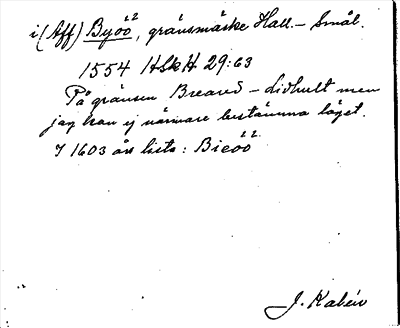 i (Aff) Byöö, gränsmärke Hall. – Smål.
1554 HSkH 29:63
På gränsen Breared – Lidhult men
jag kan ej närmare bestämma läget.
I 1603 års lista: Bieöö
J. Kalén